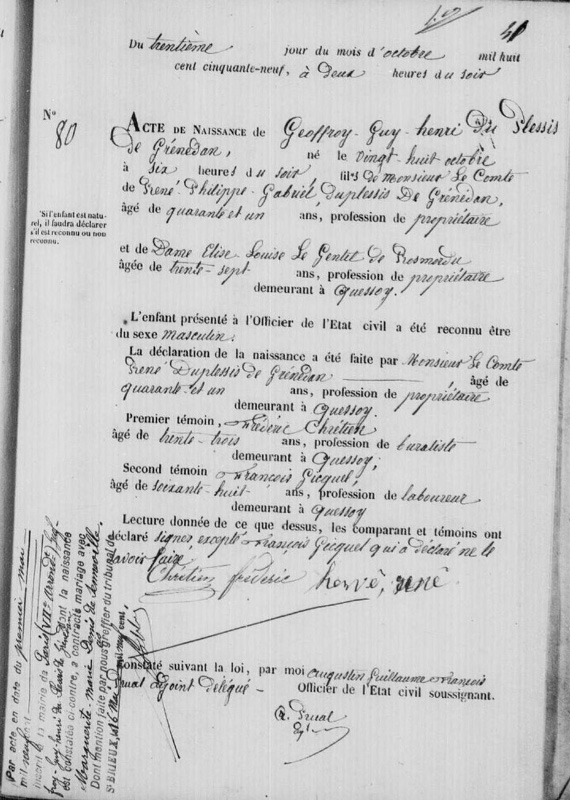 51
Du trentième jour du mois d'octobre mil huit
cent cinquante-neuf, à deux heures du soir
N° 80
ACTE DE NAISSANCE de Geoffroy-Guy-henri Du Plessis
De Grénédan, né le vingt-huit octobre
à six heures du soir, fils de monsieur Le Comte
de René-Philippe-Gabriel, Duplessis De Grénédan,
âgé de quarante et un ans, profession de propriétaire
Si l'enfant est natu-
rel, il faudra déclarer
s'il est reconnu ou non
reconnu.
et de Dame Elise Louise Le Gentil de Rosmordu
âgée de trente-sept ans, profession de propriétaire
demeurant à Quessoy.
L'enfant présenté à l'Officier de l'Etat civil a été reconnu être
du sexe masculin.
La déclaration de la naissance a été faite par Monsieur Le Comte
René Duplessis de Grénédan, âgé de
quarante et un ans, profession de propriétaire
demeurant à Quessoy.
Premier témoin, Frédéric Chrétien
âgé de trente-trois ans, profession de buraliste
demeurant à Quessoy;
Second témoin François Gicquel,
âgé de soixante-huit ans, profession de laboureur
demeurant à Quessoy
Lecture donnée de ce que dessus, les comparant et témoins ont
déclaré signer excepté François Gicquel qui a déclaré ne le
savoir faire,
Chrétien frédéric hervé, rené
Constaté suivant la loi, par moi Augustin Guillaume François
Prual adjoint délégué Officier de l'Etat civil soussigné.
A. Prual
Par acte, en date du premier mai
mil neuf cent
inscrit à la mairie de Paris VIIe arrondt Geof-
froy-Guy-henri du Plessis de Grénédan dont la naissance
est constatée ci-contre, a contracté mariage avec
Marguerite-Marie Denis de Senneville
Dont mention faite par nous greffier du tribunal de
St BRIEUC, le 16 Mai mil neuf cent.